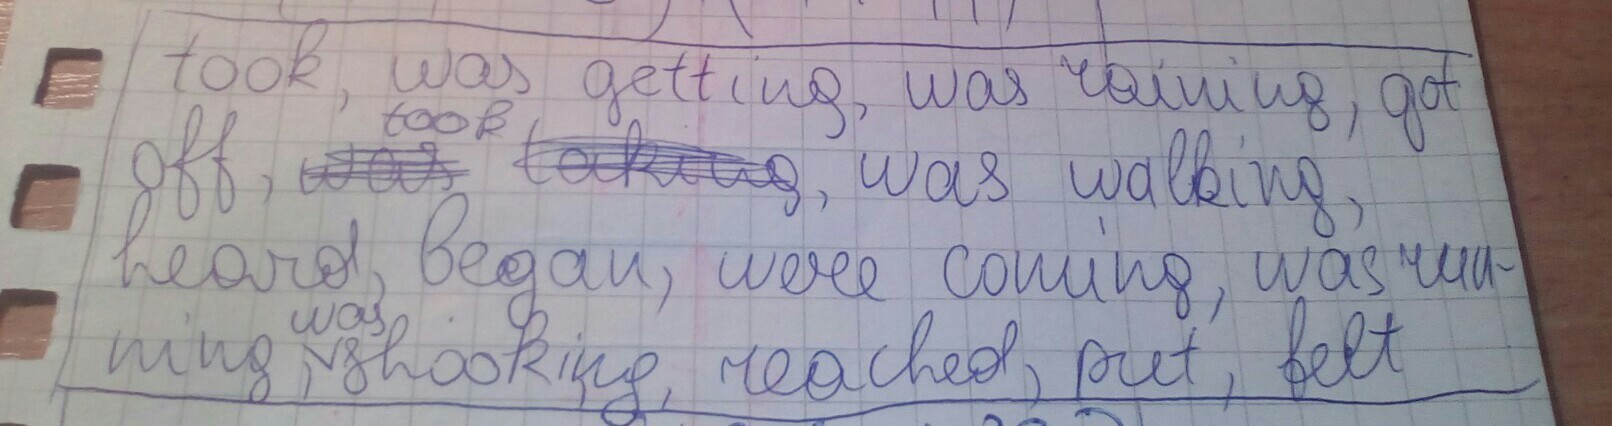 took, was getting, was raining, got
off, took, was walking,
heard, began, were coming, was run-
ning, was shooking, reached, put, felt